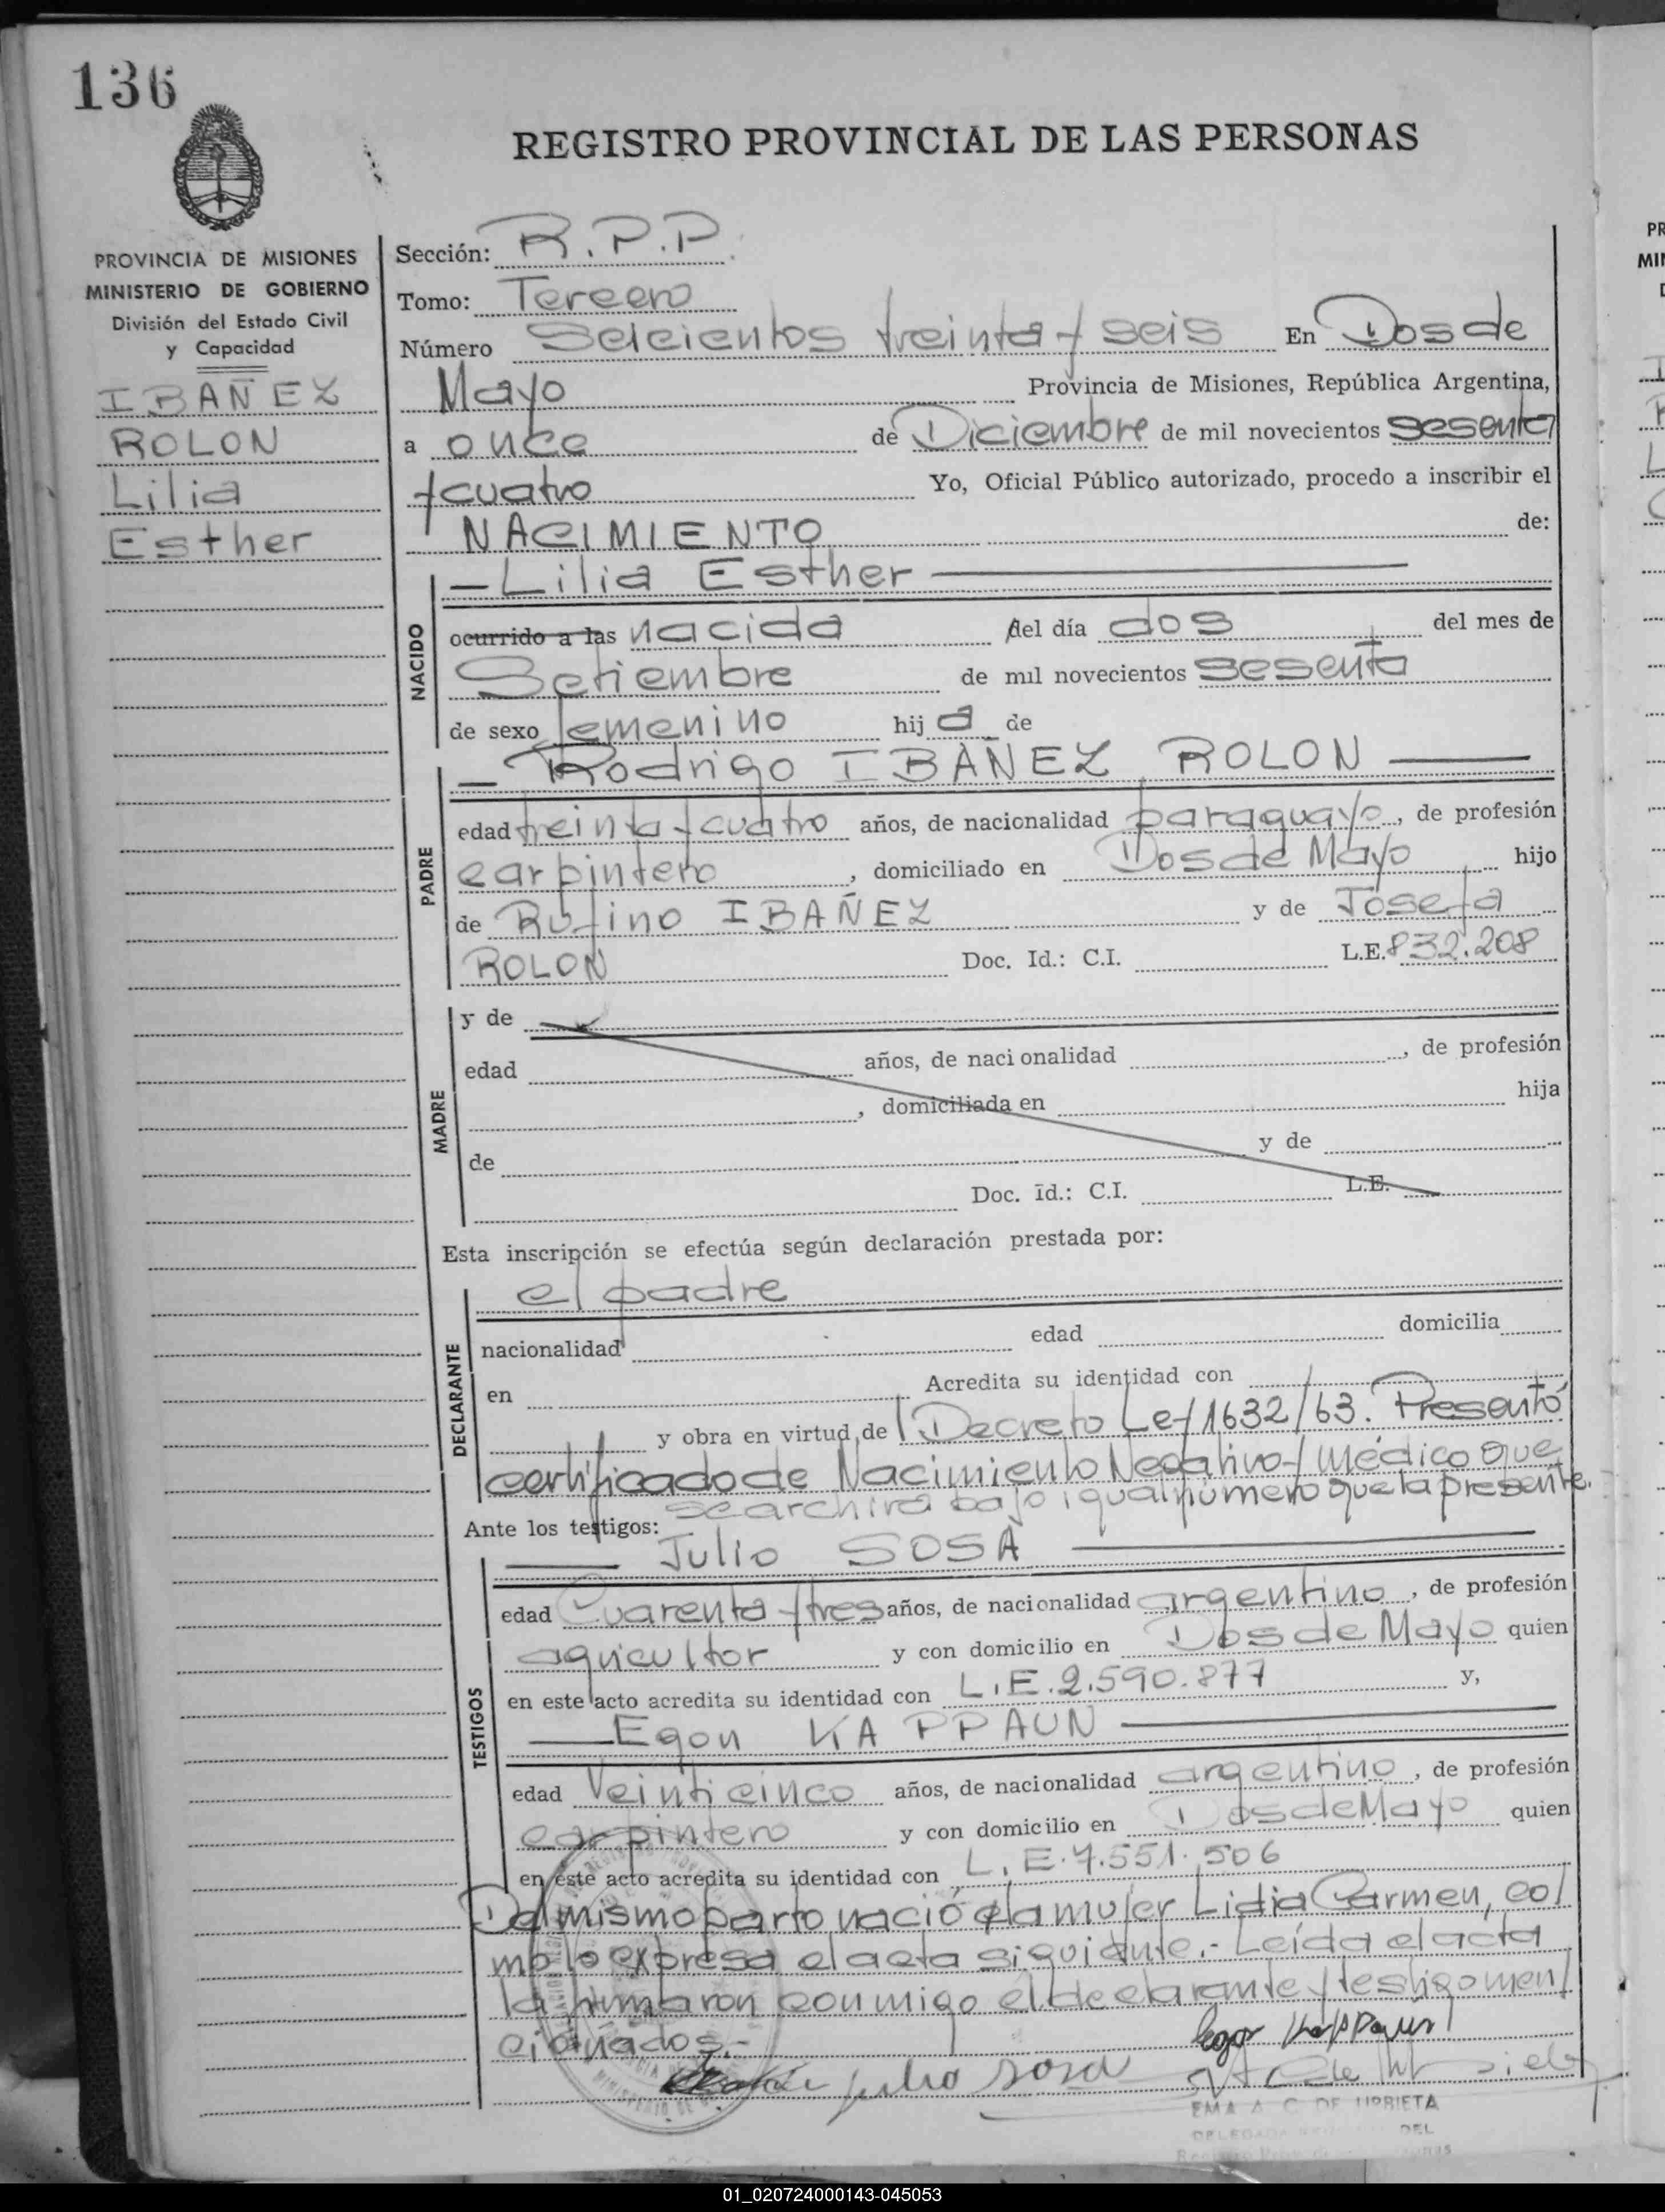 136
REGISTRO PROVINCIAL DE LAS PERSONAS
PROVINCIA DE MISIONES
MINISTERIO DE GOBIERNO
División del Estado Civil
y Capacidad
IBAÑEZ
ROLON
Lilia
Esther
Sección: R.P.P.
Tomo: Tercero
Número Seiscientos treinta y seis En Dos de
Mayo Provincia de Misiones, República Argentina,
a once de Diciembre de mil novecientos sesenta
y cuatro Yo, Oficial Público autorizado, procedo a inscribir el
NACIMIENTO de:
NACIDO
— Lilia Esther —
ocurrido a las nacida del día dos del mes de
Setiembre de mil novecientos sesenta
de sexo femenino hij a de
PADRE
— Rodrigo IBAÑEZ ROLON —
edad treinta y cuatro años, de nacionalidad paraguayo, de profesión
carpintero, domiciliado en Dos de Mayo hijo
de Rufino IBAÑEZ y de Josefa
ROLON Doc. Id.: C.I. L.E. 832.208
MADRE
y de
edad años, de nacionalidad , de profesión
, domiciliada en hija
de y de
Doc. Id.: C.I. L.E.
Esta inscripción se efectúa según declaración prestada por:
DECLARANTE
el padre
nacionalidad edad domicilia
en Acredita su identidad con
y obra en virtud de Decreto Ley 1632/63. Presentó
certificado de Nacimiento Negativo y médico que
se archiva bajo igual número que la presente.
Ante los testigos:
TESTIGOS
— Julio SOSA —
edad Cuarenta y tres años, de nacionalidad argentino, de profesión
agricultor y con domicilio en Dos de Mayo quien
en este acto acredita su identidad con L.E. 2.590.877 y,
— Egon KAPPAUN —
edad Veinticinco años, de nacionalidad argentino, de profesión
carpintero y con domicilio en Dos de Mayo quien
en este acto acredita su identidad con L.E. 7.551.506
Del mismo parto nació la mujer Lidia Carmen, co/
mo lo expresa el acta siguiente.- Leída el acta
la firmaron conmigo el declarante y testigo men/
cionados.-
Egon Kappaun
julio sosa
EMA A. C. DE URRIETA
DEL
01_020724000143-045053